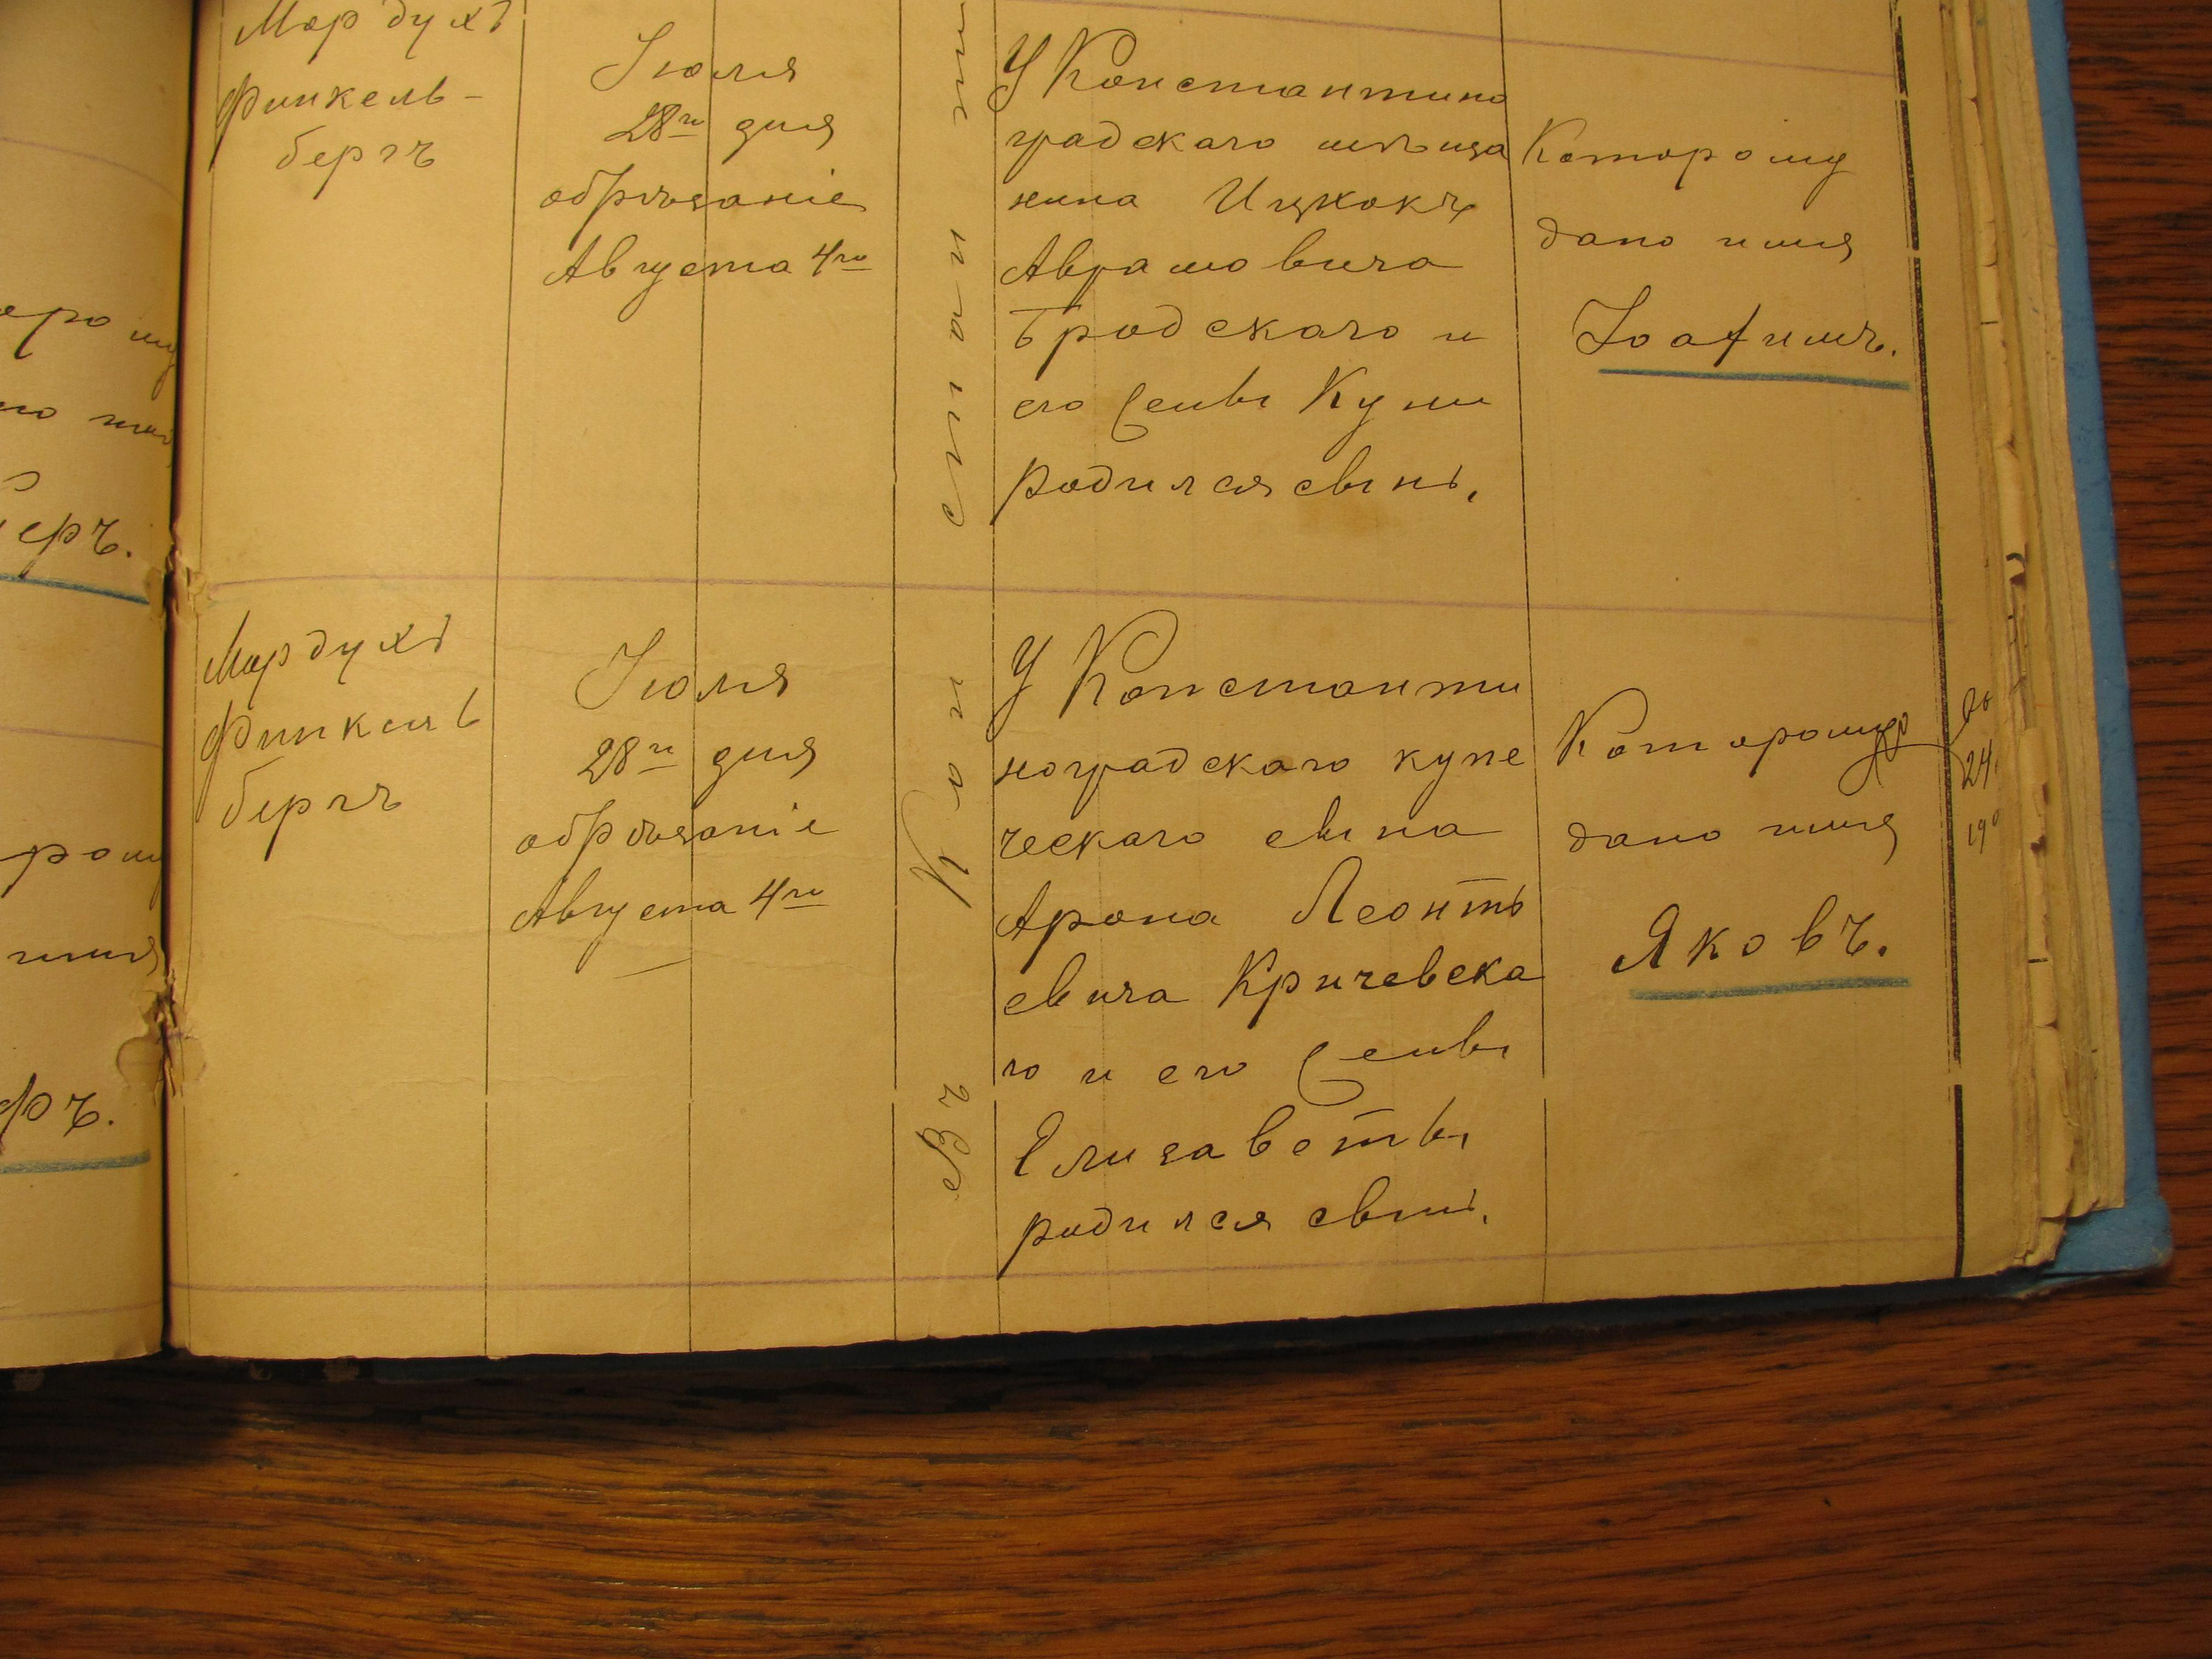 Мордухъ
Финкель-
бергъ
Іюля
28го дня
обрѣзаніе
Августа 4го
У Константино
градскаго мѣща
нина Ицхокъ
Аврамовича
Бродскаго и
его жены Куни
родился сынъ,
Которому
дано имя
Іоахимъ.
Мордухъ
Финкель
бергъ
Іюля
28го дня
обрѣзаніе
Августа 4го
Въ Конст
У Константи
ноградскаго купе
ческаго сына
Арона Леонть
евича Кричевска
го и его жены
Елизаветы
родился сынъ,
Которому
дано имя
Яковъ.
24
190
еръ.